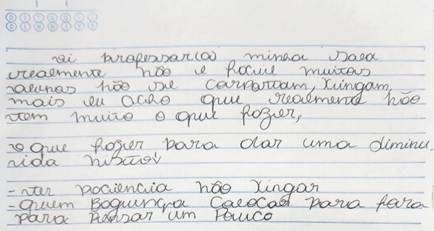 oi professar(a) minha sala
realmente não e facil muitas
alunas não se comportam, xingam,
mais eu acho que realmente não
tem muito o que fazer,
o que fazer para dar uma diminu
ida nisso↓
- ter paciencia não xingar
- quem bagunça colocar para fora
para pensar um pouco